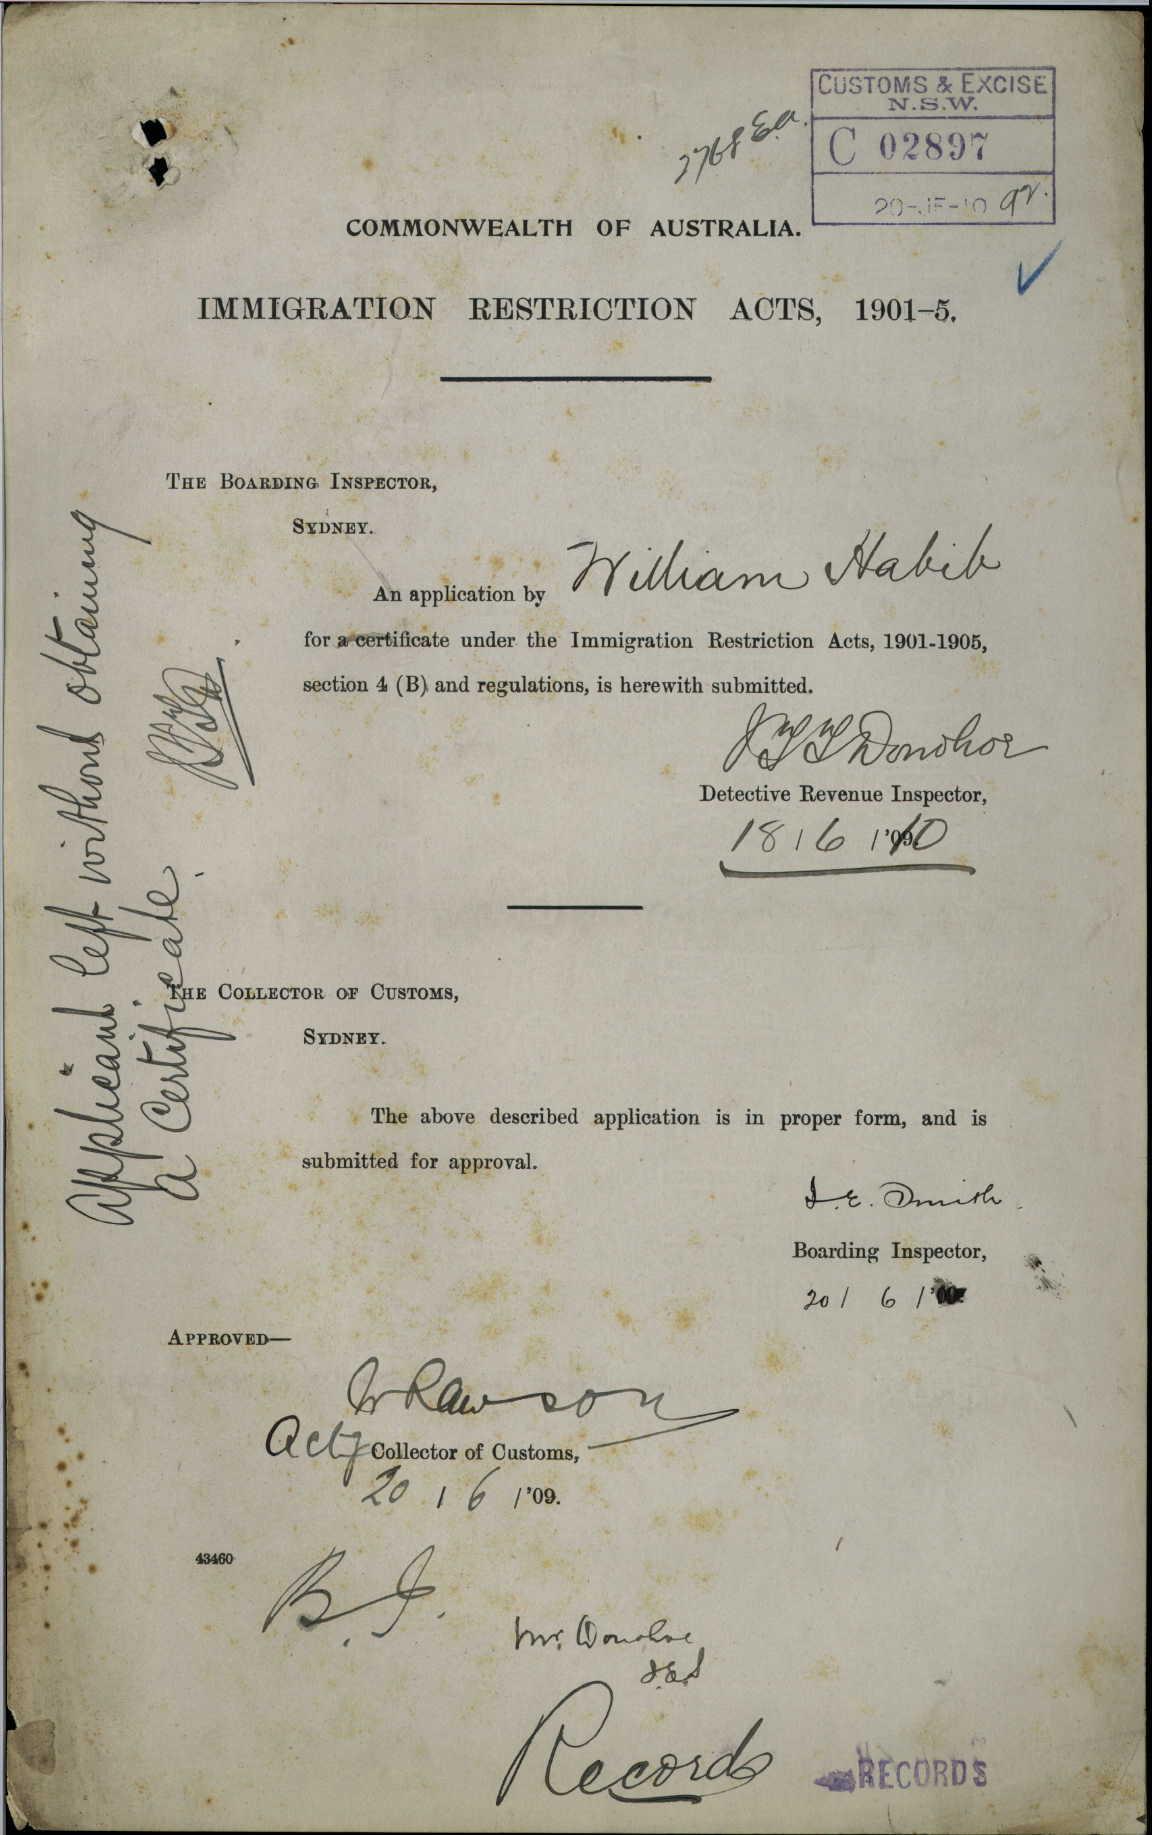 CUSTOMS & EXCISE
N.S.W.
C 02897
20-JE-10
2768 E.A.
COMMONWEALTH OF AUSTRALIA.
IMMIGRATION RESTRICTION ACTS, 1901–5.
THE BOARDING INSPECTOR,
SYDNEY.
An application by William Habib
for a certificate under the Immigration Restriction Acts, 1901-1905,
section 4 (B) and regulations, is herewith submitted.
J T T Donohoe
Detective Revenue Inspector,
18 / 6 /'10
Applicant left without obtaining
a Certificate.
THE COLLECTOR OF CUSTOMS,
SYDNEY.
The above described application is in proper form, and is
submitted for approval.
J. E. Smith.
Boarding Inspector,
20 / 6 /'09.
APPROVED—
W Rawson
Actg Collector of Customs,
20 / 6 /'09.
43460
B. I.
Mr. Donohoe
J.E.S
Records
RECORDS